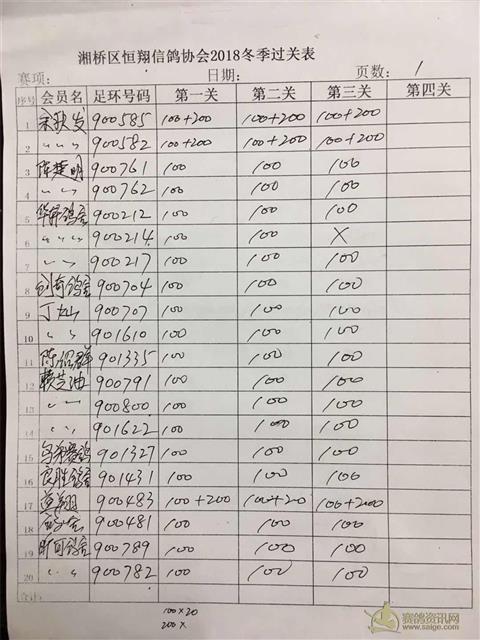 湘桥区恒翔信鸽协会2018冬季过关表
赛项: 日期: 页数: 1
序号 会员名 足环号码 第一关 第二关 第三关 第四关
1 900585 100+200 100+200 100+200
2 〃 〃 900582 100+200 100+200 100+200
3 陈楚明 900761 100 100 100
4 〃 〃 900762 100 100 100
5 华屏鸽舍 900212 100 100 100
6 〃 〃 900214 100 100 X
7 〃 〃 900217 100 100 100
8 鸽舍 900704 100 100 100
9 丁灿 900707 100 100 100
10 〃 〃 901610 100 100 100
11 陈绍群 901335 100 100 100
12 赖芝油 900791 100 100 100
13 〃 〃 900800 100 100 100
14 〃 〃 901622 100 100 100
15 901327 100 100 100
16 良胜鸽舍 901431 100 100 100
17 900483 100+200 100+20 100+200
18 900481 100 100 100
19 鸽舍 900789 100 100 100
20 〃 〃 900782 100 100 100
合计:
100×20
200×
赛鸽资讯网
www.saige.com